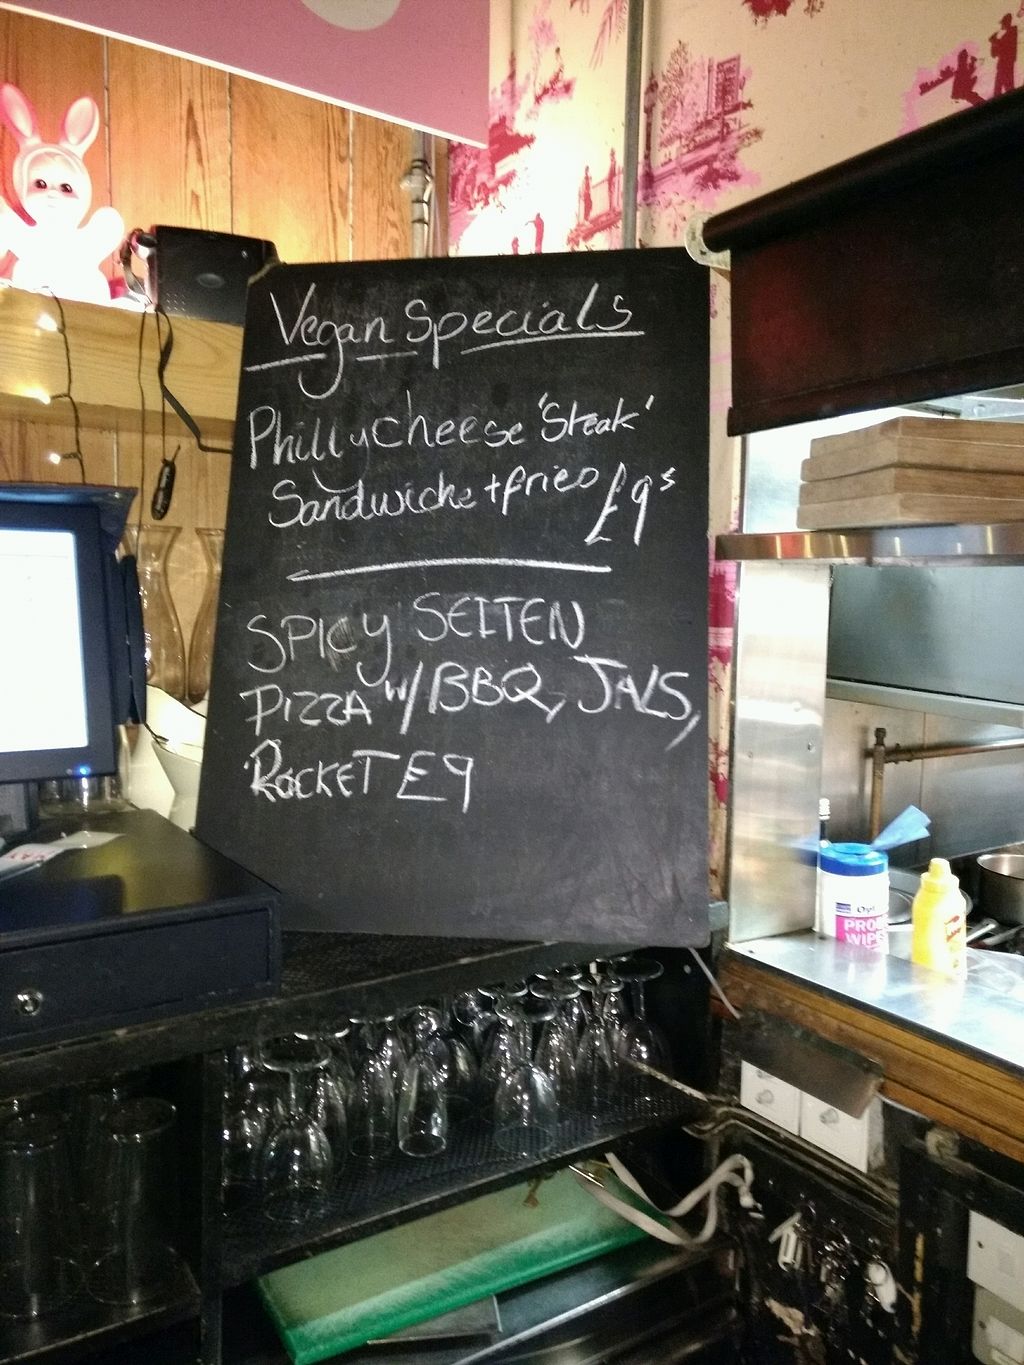 Vegan Specials
Philly cheese 'Steak'
Sandwiche + fries £9⁵
SPICY SEITEN
PIZZA w/ BBQ, JALS,
ROCKET £9
PRO
WIPES